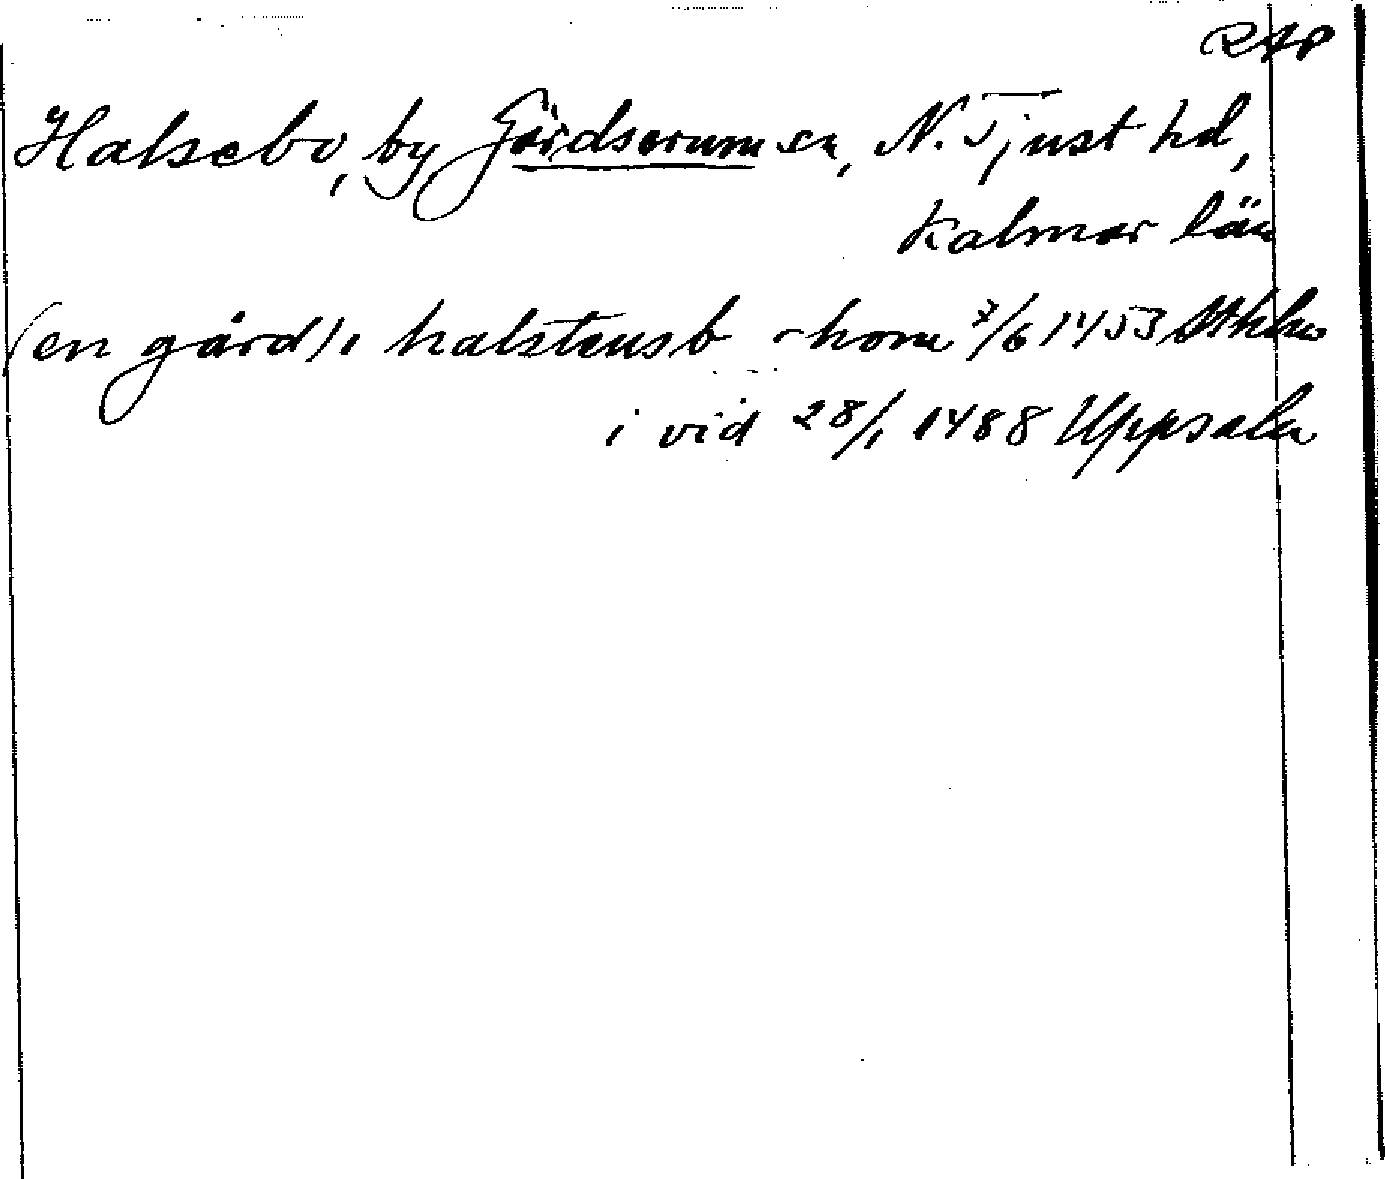 RAP
Halsebo, by Gärdserum sn, N. Tjust hd,
Kalmar län
(en gård) i halstensb - hom 7/6 1453 Sthlm
i vid 28/1 1488 Uppsala